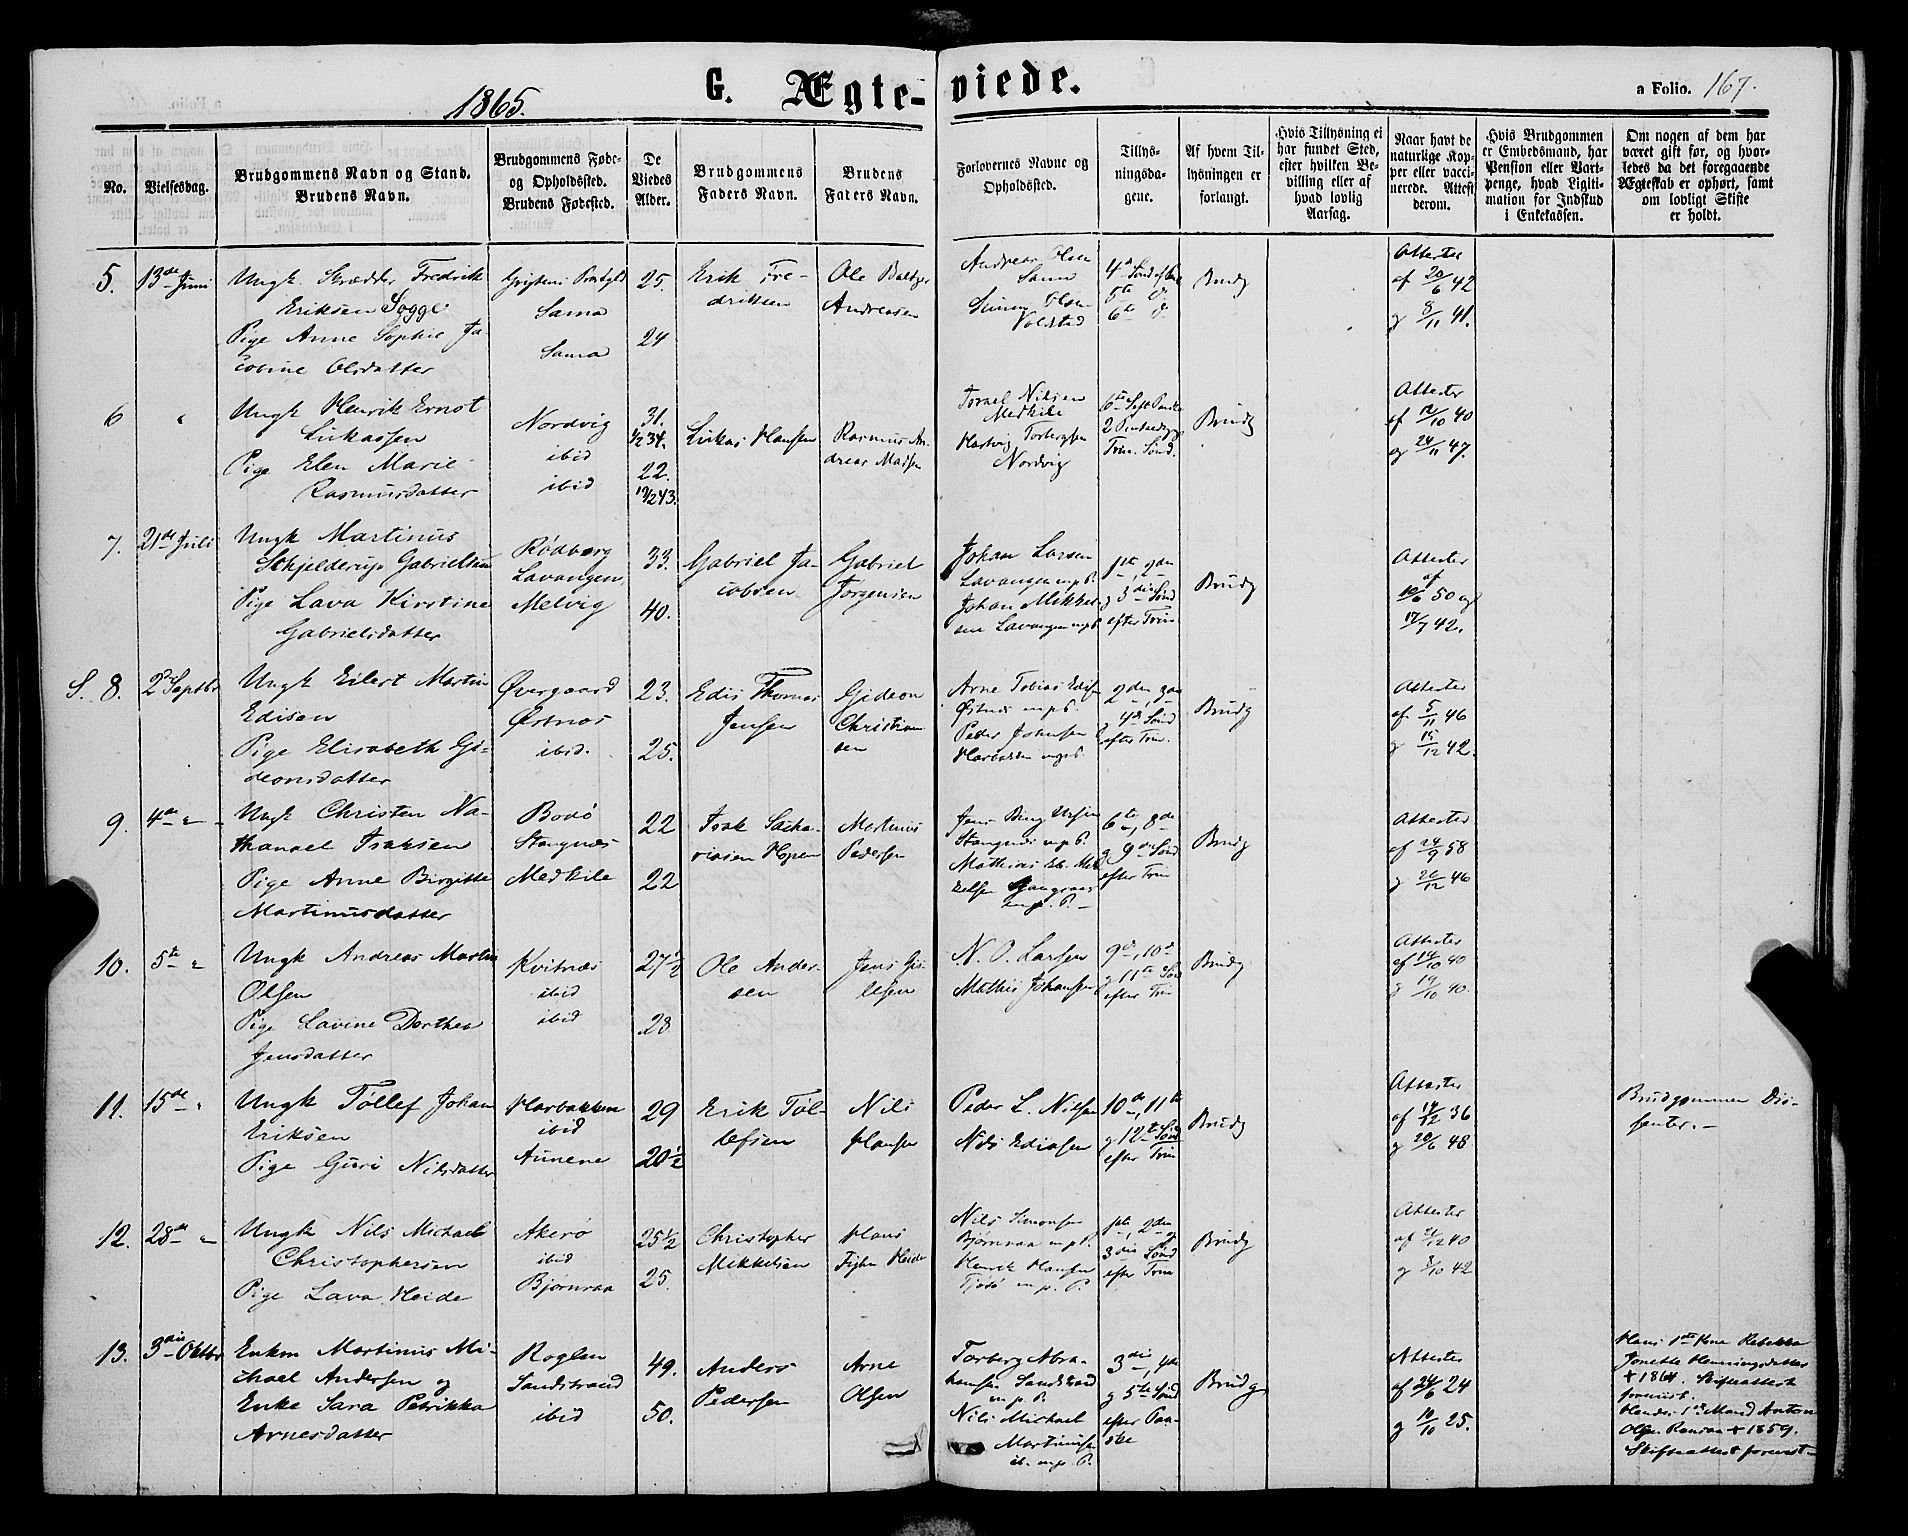 1865.
G. Ægte-
viede.
a Folio. 167.
No.
Vielsesdag.
Brudgommens Navn og Stand.
Brudens Navn.
Brudgommens Føde-
og Opholdssted.
Brudens Fødested.
De
Viedes
Alder.
Brudgommens
Faders Navn.
Brudens
Faters Navn.
Forlovernes Navne og
Opholdssted.
Tillys-
ningsda-
gene.
Af hvem Til-
lysningen er
forlangt.
Hvis Tillysning ei
har fundet Sted,
efter hvilken Be-
villing eller af
hvad lovlig
Aarsag.
Naar havt de
naturlige Kop-
per eller vacci-
nerede. Attest
derom.
Hvis Brudgommen
er Embedsmand, har
Pension eller Vart-
penge, hvad Ligiti-
mation for Indskud
i Enkekassen.
Om nogen af dem har
været gift før, og hvor-
ledes da det foregaaende
Ægteskab er ophørt, samt
om lovligt Skifte
er holdt.
5. 13de Juni
Ungk. Skrædder Fredrik
Eriksen Sogge
Pige Anne Sophie Ja-
cobine Olsdatter
Sama
Sama
25.
24
Erik Fre-
driksen
Ole Baltzer
Andreasen
Andreas Olsen
Sama
Simon Olsen
Volstad
5te d
6te d
Brudg
Attester
af 20/6 42
g 8/11 41.
6 "
Ungk Henrik Ernst
Lukassen
Pige Elen Marie
Rasmusdatter
Nordvig
ibid
ibid
31.
1/2 34.
22.
19/2 43.
Lukas Hansen
Rasmus An-
dreas Madsen
Tornel Nilsen
Medkile
Hartvig Torbergsen
Nordvig
2 Pintsedag
Trin. Sønd.
Brudg
Attester
af 12/10 40
og 24/11 47.
7. 21de Juli
Ungk Martinus
Schjelderup Gabrielsen
Pige Lava Kirstine
Gabrielsdatter
Rødberg
Lavangen
Melvig
33.
40.
Gabriel Ja-
cobsen
Gabriel
Jørgensen
Johan Larsen
Lavangen mpP.
Johan Mikkel-
sen Lavangen mpP.
1ste, 2den
g 3die Sønd
efter Trin
Brudg
Attester
af
10/6 50 og
17/7 42.
S. 8. 2den Septbr
Ungk Eilert Martin
Edisen
Pige Elisabeth Gi-
deonsdatter
Øvergaard
Østnes
ibid.
23.
25.
Edis Thomas
Jensen
Gideon
Christian-
sen
Arne Tobias Edisen
Østnes mpP.
Peder Johnsen
Harbakken mpP.
2den, 3die
g 4de Sønd
efter Trin.
Brudg
Attester
af 5/11 46
g 15/12 42.
9. 4de "
Ungk Christen Na-
thanael Isaksen
Pige Anne Birgitte
Martinusdatter
Bodø
Stangnes
Medkile
22
22
Isak Sacka-
riasen Hopen
Martinus
Pedersen
Stangnes mpP.
6te, 8de
g 9de Sønd
efter Trin
Brudg
Attester
af 24/9 58
g 26/12 46
10. 5te "
Ungk Andreas Martin
Olsen
Pige Lavine Dorthea
Jensdatter
Kvitnes
ibid
ibid
27 1/2
28
Ole Ander-
sen
Jens Gis-
lesen
N. O. Larsen
Mathis Johansen
9de, 10de
g 11te Sønd
efter Trin
Brudg
Attester
af 14/10 40
g 14/10 40.
11. 15de "
Ungk Tøllef Johan
Eriksen
Pige Guri Nilsdatter
Harbakken
ibid
Aunene
29
20 1/2
Erik Tøl-
lefsen
Nils
Hansen
Peder L. Nilsen
Nils Ediasen
10de, 11te
g 12te Sønd
efter Trin
Brudg
Attester
af 14/12 36
g 20/6 48
Brudgommen Dis-
senter. -
12. 28de "
Ungk Nils Michael
Christophersen
Pige Lava Heide
Akerø
ibid
Bjørnraa
25 1/2
25.
Christopher
Mikkelsen
Hans
Heide
Nils Simonsen
Bjørnraa mpP.
Henrik Hansen
m. p. P.
1ste, 2den g
3die Sønd
efter Trin
Brudg
Attester
af 21/12 40
g 3/10 42
13. 3die Oktbr
Enkm Martinus Mi-
chael Andersen og
Enke Sara Petrikka
Arnesdatter
Roglen
Sandstrand
ibid
49.
50.
Anders
Pedersen
Arne
Olsen
Torberg Abra-
hamsen Sandstrand
m. p. P.
Nils Michael
Martinusen
ib. m. p. P.
3die, 4de
g 5te Sønd
efter Paa-
ske
Brudg
Attester
af 24/6 24
g 10/10 25.
Hans 1ste Kone Rebekka
Jonette Henningsdatter
+ 1864. Skifteattest
forevist.
Hendes 1ste Mand Anton
Olsen Ranraa + 1859.
Skifteattest forevist -